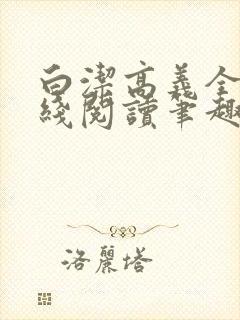 白潔高義全
綫閱讀筆趣
洛麗塔